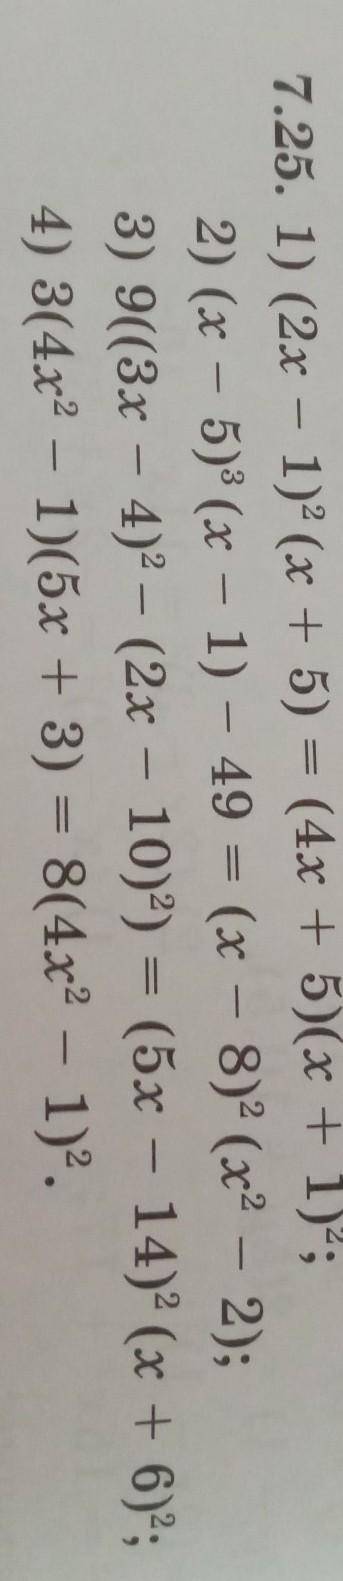 7.25. 1) (2x − 1)² (x + 5) = (4x + 5)(x + 1)²;
2) (x − 5)³ (x − 1) − 49 = (x − 8)² (x² − 2);
3) 9((3x − 4)² − (2x − 10)²) = (5x − 14)² (x + 6)²;
4) 3(4x² − 1)(5x + 3) = 8(4x² − 1)².